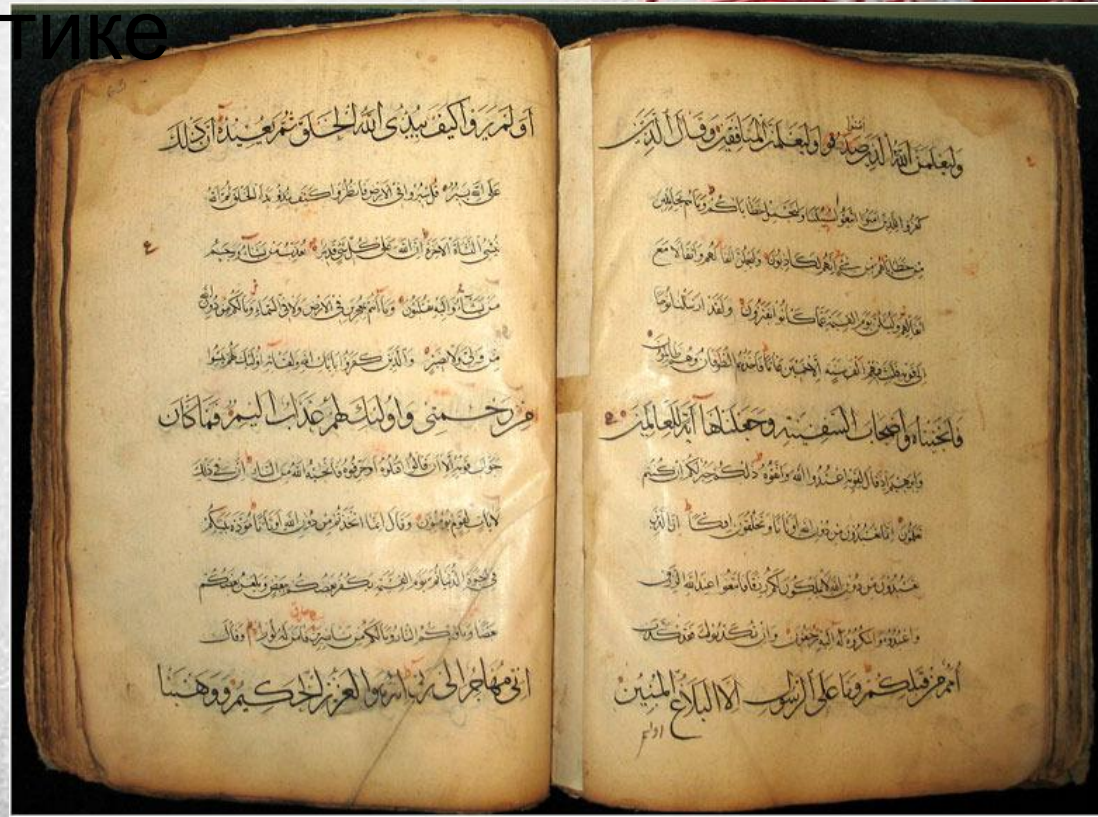 тике
امنوا
وليعلمن الله الذين صدقوا وليعلمن المنافقين وقال الذين
كفروا للذين امنوا اتبعوا سبيلنا ولنحمل خطاياكم وما هم بحاملين
من خطاياهم من شئ انهم لكاذبون وليحملن اثقالهم واثقالا مع
اثقالهم وليسئلن يوم القيمة عما كانوا يفترون ولقد ارسلنا نوحا
الى قومه فلبث فيهم الف سنة الا خمسين عاما فاخذهم الطوفان وهم ظالمون
فانجيناه واصحاب السفينة وجعلناها آية للعالمين
وابرهيم اذ قال لقومه اعبدوا الله واتقوه ذلكم خير لكم ان كنتم
تعلمون انما تعبدون من دون الله اوثانا وتخلقون افكا ان الذين
تعبدون من دون الله لا يملكون لكم رزقا فابتغوا عند الله الرزق
واعبدوه واشكروا له اليه ترجعون وان تكذبوا فقد كذب
امم من قبلكم وما على الرسول الا البلاغ المبين
اولم
اولم يروا كيف يبدئ الله الخلق ثم يعيده ان ذلك
على الله يسير قل سيروا فى الارض فانظروا كيف بدا الخلق ثم الله
ينشئ النشاة الاخرة ان الله على كل شئ قدير يعذب من يشاء ويرحم
من يشاء واليه تقلبون وما انتم بمعجزين فى الارض ولا فى السماء وما لكم من دون الله
من ولى ولا نصير والذين كفروا بايات الله ولقائه اولئك يئسوا
من رحمتى واولئك لهم عذاب اليم فما كان
جواب قومه الا ان قالوا اقتلوه او حرقوه فانجيه الله من النار ان فى ذلك
لايات لقوم يومنون وقال انما اتخذتم من دون الله اوثانا مودة بينكم
فى الحيوة الدنيا ثم يوم القيمة يكفر بعضكم ببعض ويلعن بعضكم
بعضا وماويكم النار وما لكم من ناصرين فامن له لوط وقال
انى مهاجر الى ربى انه هو العزيز الحكيم ووهبنا